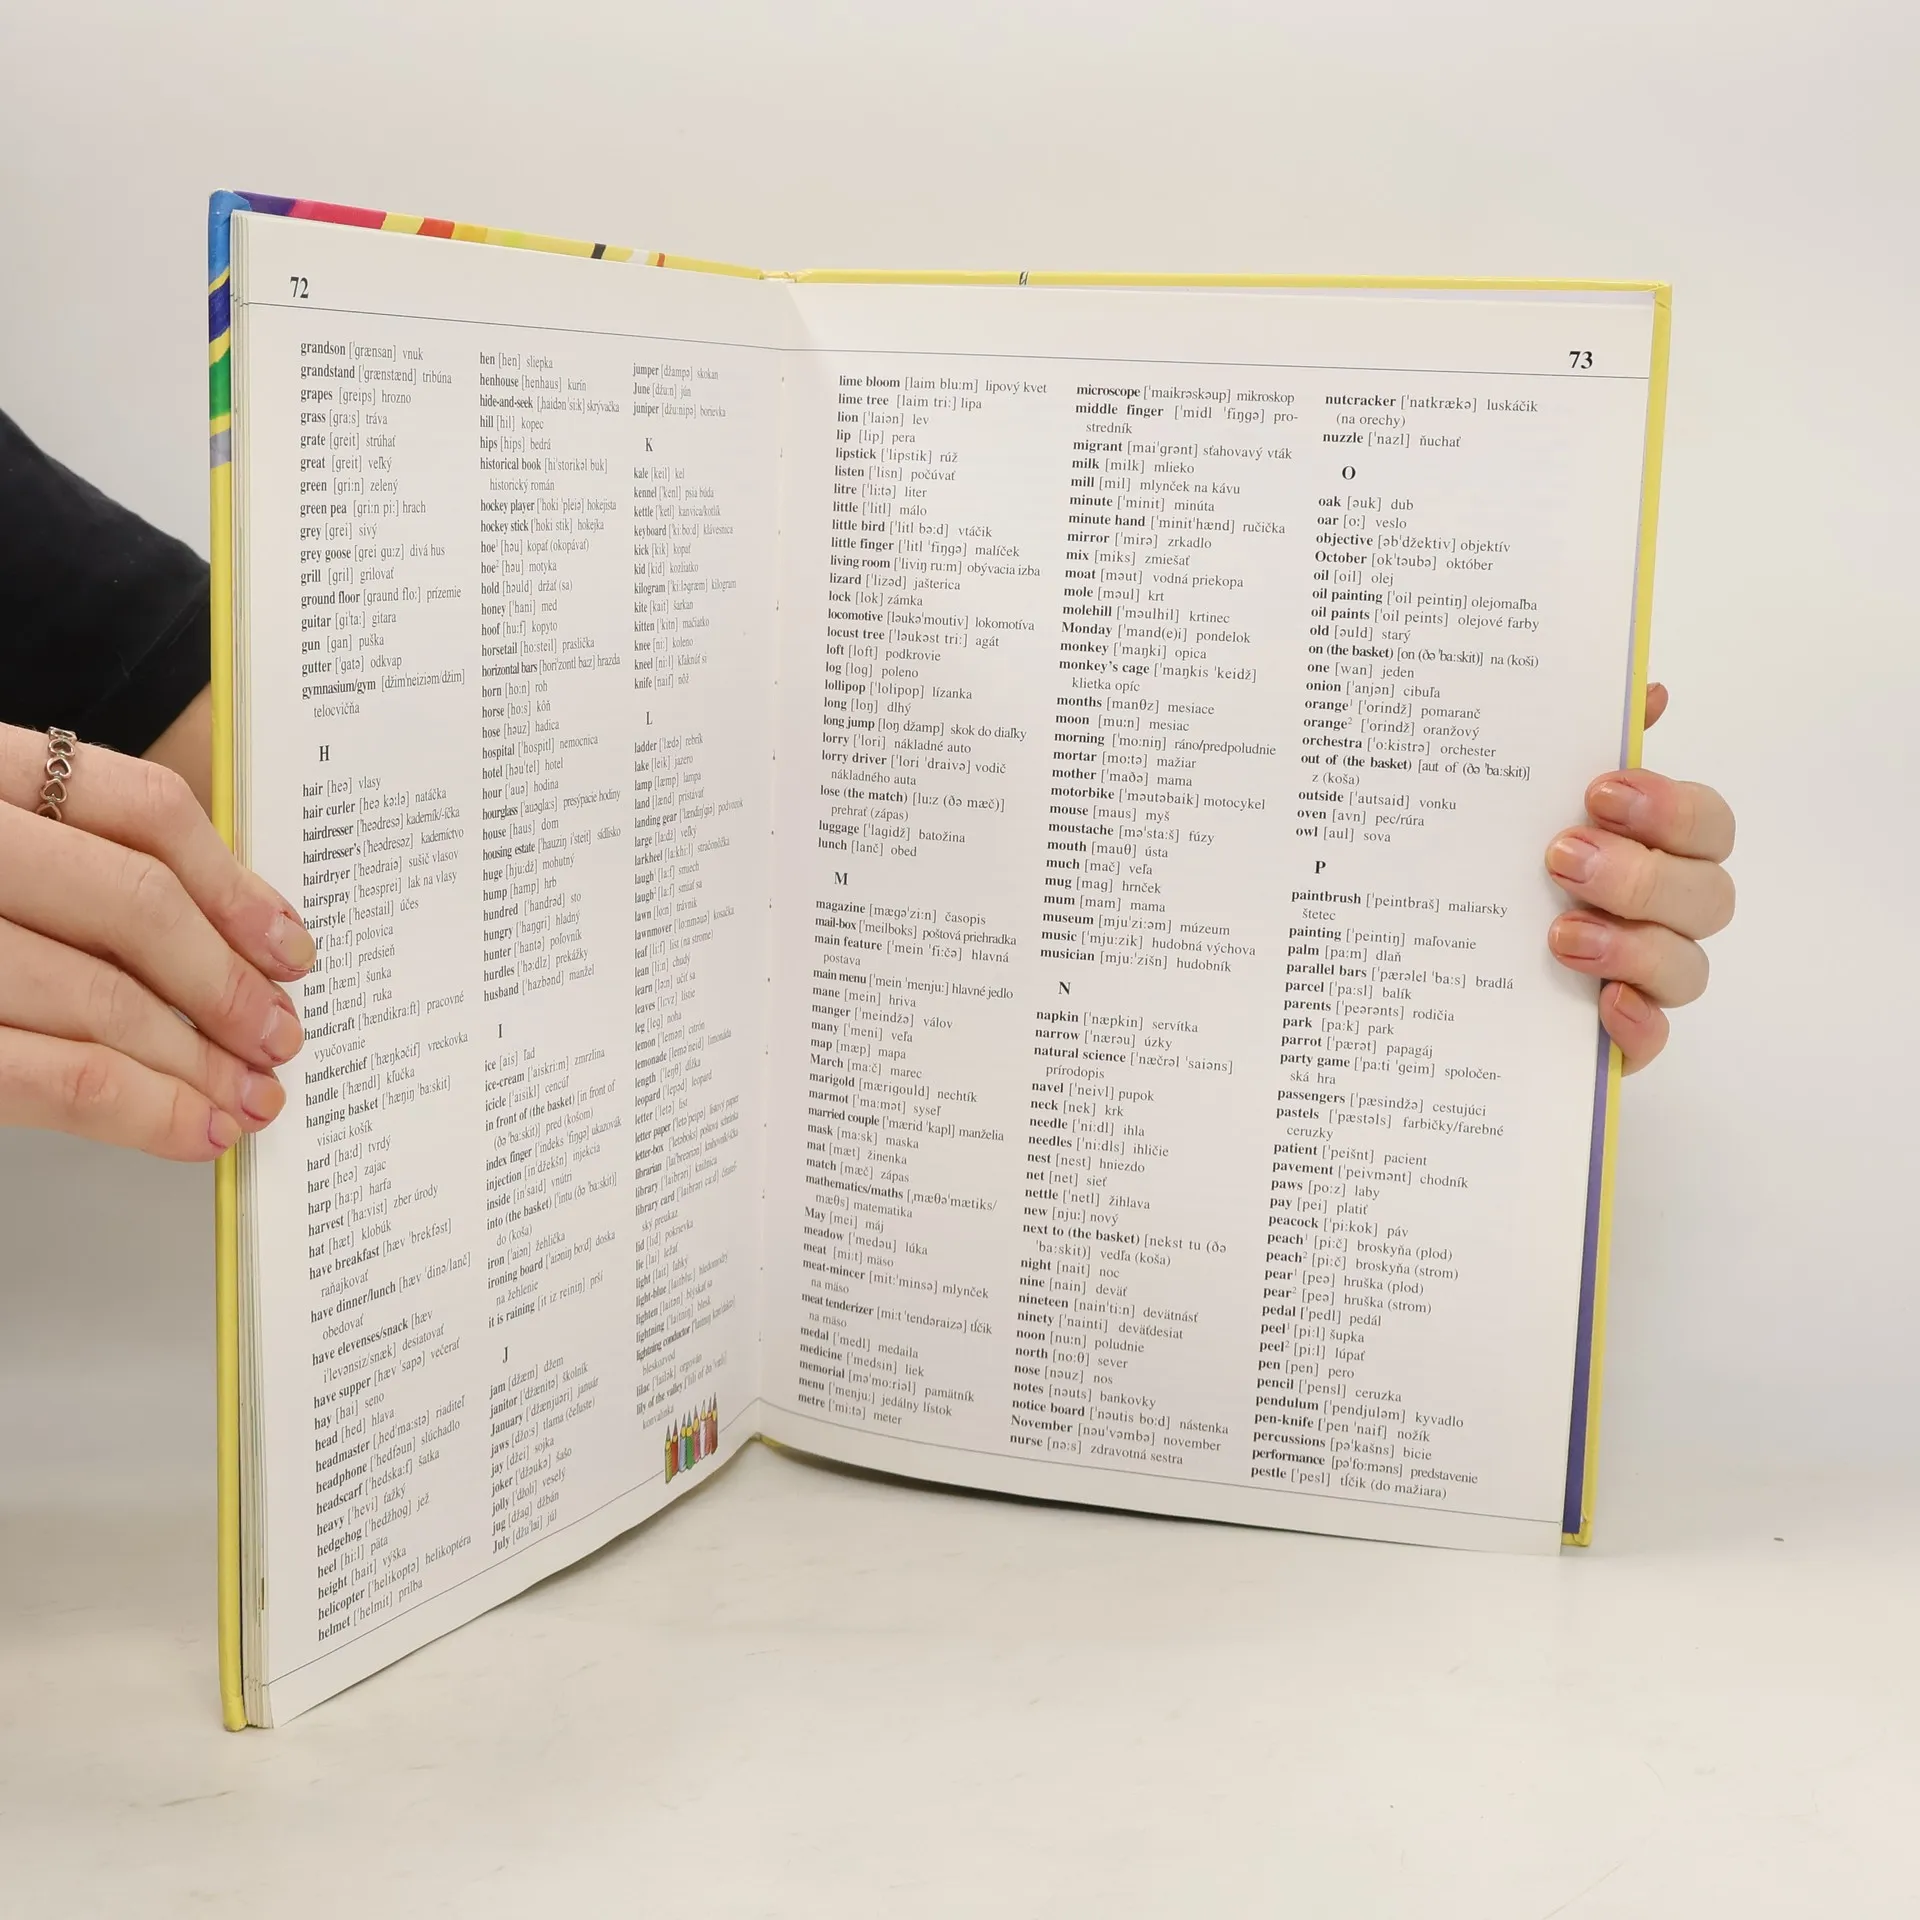 72
grandson ['grænsan] vnuk
grandstand ['grænstænd] tribúna
grapes [greips] hrozno
grass [gra:s] tráva
grate [greit] strúhať
great [greit] veľký
green [gri:n] zelený
green pea [gri:n pi:] hrach
grey [grei] sivý
grey goose [grei gu:z] divá hus
grill [gril] grilovať
ground floor [graund flo:] prízemie
guitar [gi'ta:] gitara
gun [gan] puška
gutter ['gatə] odkvap
gymnasium/gym [džim'neiziəm/džim]
telocvičňa
H
hair [heə] vlasy
hair curler [heə kə:lə] natáčka
hairdresser ['heədresə] kaderník/-íčka
hairdresser's ['heədresəz] kaderníctvo
hairdryer ['heədraiə] sušič vlasov
hairspray ['heəsprei] lak na vlasy
hairstyle ['heəstail] účes
lf [ha:f] polovica
ll [ho:l] predsieň
ham [hæm] šunka
hand [hænd] ruka
handicraft ['hændikra:ft] pracovné
vyučovanie
handkerchief ['hæŋkəčif] vreckovka
handle ['hændl] kľučka
hanging basket ['hæŋiŋ 'ba:skit]
visiaci košík
hard [ha:d] tvrdý
hare [heə] zajac
harp [ha:p] harfa
harvest ['ha:vist] zber úrody
hat [hæt] klobúk
have breakfast [hæv 'brekfəst]
raňajkovať
have dinner/lunch [hæv 'dinə/lanč]
obedovať
have elevenses/snack [hæv
i'levənsiz/snæk] desiatovať
have supper [hæv 'sapə] večerať
hay [hai] seno
head [hed] hlava
headmaster [,hed'ma:stə] riaditeľ
headphone ['hedfəun] slúchadlo
headscarf ['hedska:f] šatka
heavy ['hevi] ťažký
hedgehog ['hedžhog] jež
heel [hi:l] päta
height [hait] výška
helicopter ['helikoptə] helikoptéra
helmet ['helmit] prilba
hen [hen] sliepka
henhouse [henhaus] kurín
hide-and-seek [,haidən'si:k] skrývačka
hill [hil] kopec
hips [hips] bedrá
historical book [hi'storikəl buk]
historický román
hockey player ['hoki 'pleiə] hokejista
hockey stick ['hoki stik] hokejka
hoe¹ [həu] kopať (okopávať)
hoe² [həu] motyka
hold [həuld] držať (sa)
honey ['hani] med
hoof [hu:f] kopyto
horsetail [ho:steil] praslička
horizontal bars [hori'zontl ba:z] hrazda
horn [ho:n] roh
horse [ho:s] kôň
hose [həuz] hadica
hospital ['hospitl] nemocnica
hotel [həu'tel] hotel
hour ['auə] hodina
hourglass ['auəgla:s] presýpacie hodiny
house [haus] dom
housing estate ['hauziŋ i'steit] sídlisko
huge [hju:dž] mohutný
hump [hamp] hrb
hundred ['handrəd] sto
hungry ['haŋgri] hladný
hunter ['hantə] poľovník
hurdles ['hə:dlz] prekážky
husband ['hazbənd] manžel
I
ice [ais] ľad
ice-cream ['aiskri:m] zmrzlina
icicle ['aisikl] cencúľ
in front of (the basket) [in front of
(ðə 'ba:skit)] pred (košom)
index finger ['indeks 'fiŋgə] ukazovák
injection [in'džekšn] injekcia
inside [in'said] vnútri
into (the basket) ['intu (ðə 'ba:skit)]
do (koša)
iron ['aiən] žehlička
ironing board ['aiəniŋ bo:d] doska
na žehlenie
it is raining [it iz reiniŋ] prší
J
jam [džæm] džem
janitor ['džænitə] školník
January ['džænjuəri] január
jaws [džo:s] tlama (čeľuste)
jay [džei] sojka
joker ['džəukə] šašo
jolly ['džoli] veselý
jug [džag] džbán
July [džu'lai] júl
jumper [džampə] skokan
June [džu:n] jún
juniper [džu:nipə] borievka
K
kale [keil] kel
kennel ['kenl] psia búda
kettle ['ketl] kanvica/kotlík
keyboard ['ki:bo:d] klávesnica
kick [kik] kopať
kid [kid] kozliatko
kilogram ['ki:ləgræm] kilogram
kite [kait] šarkan
kitten ['kitn] mačiatko
knee [ni:] koleno
kneel [ni:l] kľaknúť si
knife [naif] nôž
L
ladder ['lædə] rebrík
lake [leik] jazero
lamp [læmp] lampa
land [lænd] pristávať
landing gear ['lændiŋ'giə] podvozok
large [la:dž] veľký
larkheel [la:khi:l] stračonôžka
laugh¹ [la:f] smiech
laugh² [la:f] smiať sa
lawn [lo:n] trávnik
lawnmover [lo:nməuə] kosačka
leaf [li:f] list (na strome)
lean [li:n] chudý
learn [lə:n] učiť sa
leaves [li:vz] lístie
leg [leg] noha
lemon [lemən] citrón
lemonade [lemə'neid] limonáda
length ['leŋθ] dĺžka
leopard ['lepəd] leopard
letter ['letə] list
letter paper ['letə'peipə] listový papier
letter-box ['letəboks] poštová schránka
librarian [lai'breəriən] knihovník/-íčka
library ['laibrəri] knižnica
library card ['laibrəri ca:d] čitateľ-
ský preukaz
lid [lid] pokrievka
lie [lai] ležať
light [lait] ľahký
light-blue [laitblu:] bledomodrý
lighten [laitən] blýskať sa
lightning [laitniŋ] blesk
lightning conductor
bleskozvod
lilac ['lailək] orgován
lily of the valley ['lili of ðə 'væli]
konvalinka
73
lime bloom [laim blu:m] lipový kvet
lime tree [laim tri:] lipa
lion ['laiən] lev
lip [lip] pera
lipstick ['lipstik] rúž
listen ['lisn] počúvať
litre ['li:tə] liter
little ['litl] málo
little bird ['litl bə:d] vtáčik
little finger ['litl 'fiŋgə] malíček
living room ['liviŋ ru:m] obývacia izba
lizard ['lizəd] jašterica
lock [lok] zámka
locomotive [ləukə'moutiv] lokomotíva
locust tree ['ləukəst tri:] agát
loft [loft] podkrovie
log [log] poleno
lollipop ['lolipop] lízanka
long [loŋ] dlhý
long jump [loŋ džamp] skok do diaľky
lorry ['lori] nákladné auto
lorry driver ['lori 'draivə] vodič
nákladného auta
lose (the match) [lu:z (ðə mæč)]
prehrať (zápas)
luggage ['lagidž] batožina
lunch [lanč] obed
M
magazine [mægə'zi:n] časopis
mail-box ['meilboks] poštová priehradka
main feature ['mein 'fi:čə] hlavná
postava
main menu ['mein 'menju:] hlavné jedlo
mane [mein] hriva
manger ['meindžə] válov
many ['meni] veľa
map [mæp] mapa
March [ma:č] marec
marigold [mærigould] nechtík
marmot ['ma:mət] syseľ
married couple ['mærid 'kapl] manželia
mask [ma:sk] maska
mat [mæt] žinenka
match [mæč] zápas
mathematics/maths [,mæθə'mætiks/
mæθs] matematika
May [mei] máj
meadow ['medəu] lúka
meat [mi:t] mäso
meat-mincer [mit:'minsə] mlynček
na mäso
meat tenderizer [mi:t 'tendəraizə] tĺčik
na mäso
medal ['medl] medaila
medicine ['medsin] liek
memorial [mə'mo:riəl] pamätník
menu ['menju:] jedálny lístok
metre ['mi:tə] meter
microscope ['maikrəskəup] mikroskop
middle finger ['midl 'fiŋgə] pro-
stredník
migrant [mai'grənt] sťahovavý vták
milk [milk] mlieko
mill [mil] mlynček na kávu
minute ['minit] minúta
minute hand ['minit'hænd] ručička
mirror ['mirə] zrkadlo
mix [miks] zmiešať
moat [məut] vodná priekopa
mole [məul] krt
molehill ['məulhil] krtinec
Monday ['mand(e)i] pondelok
monkey ['maŋki] opica
monkey's cage ['maŋkis 'keidž]
klietka opíc
months [manθz] mesiace
moon [mu:n] mesiac
morning ['mo:niŋ] ráno/predpoludnie
mortar [mo:tə] mažiar
mother ['maðə] mama
motorbike ['məutəbaik] motocykel
mouse [maus] myš
moustache [mə'sta:š] fúzy
mouth [mauθ] ústa
much [mač] veľa
mug [mag] hrnček
mum [mam] mama
museum [mju'zi:əm] múzeum
music ['mju:zik] hudobná výchova
musician [mju:'zišn] hudobník
N
napkin ['næpkin] servítka
narrow ['nærəu] úzky
natural science ['næčrəl 'saiəns]
prírodopis
navel ['neivl] pupok
neck [nek] krk
needle ['ni:dl] ihla
needles ['ni:dls] ihličie
nest [nest] hniezdo
net [net] sieť
nettle ['netl] žihlava
new [nju:] nový
next to (the basket) [nekst tu (ðə
'ba:skit)] vedľa (koša)
night [nait] noc
nine [nain] deväť
nineteen [nain'ti:n] devätnásť
ninety ['nainti] deväťdesiat
noon [nu:n] poludnie
north [no:θ] sever
nose [nəuz] nos
notes [nəuts] bankovky
notice board ['nəutis bo:d] nástenka
November [nəu'vəmbə] november
nurse [nə:s] zdravotná sestra
nutcracker ['natkrækə] luskáčik
(na orechy)
nuzzle ['nazl] ňuchať
O
oak [əuk] dub
oar [o:] veslo
objective [əb'džektiv] objektív
October [ok'təubə] október
oil [oil] olej
oil painting ['oil peintiŋ] olejomaľba
oil paints ['oil peints] olejové farby
old [əuld] starý
on (the basket) [on (ðə 'ba:skit)] na (koši)
one [wan] jeden
onion ['anjən] cibuľa
orange¹ ['orindž] pomaranč
orange² ['orindž] oranžový
orchestra ['o:kistrə] orchester
out of (the basket) [aut of (ðə 'ba:skit)]
z (koša)
outside ['autsaid] vonku
oven [avn] pec/rúra
owl [aul] sova
P
paintbrush ['peintbraš] maliarsky
štetec
painting ['peintiŋ] maľovanie
palm [pa:m] dlaň
parallel bars ['pærəlel 'ba:s] bradlá
parcel [pa:sl] balík
parents ['peərənts] rodičia
park [pa:k] park
parrot ['pærət] papagáj
party game ['pa:ti 'geim] spoločen-
ská hra
passengers ['pæsindžə] cestujúci
pastels ['pæstəls] farbičky/farebné
ceruzky
patient ['peišnt] pacient
pavement ['peivmənt] chodník
paws [po:z] laby
pay [pei] platiť
peacock ['pi:kok] páv
peach¹ [pi:č] broskyňa (plod)
peach² [pi:č] broskyňa (strom)
pear¹ [peə] hruška (plod)
pear² [peə] hruška (strom)
pedal ['pedl] pedál
peel¹ [pi:l] šupka
peel² [pi:l] lúpať
pen [pen] pero
pencil ['pensl] ceruzka
pendulum ['pendjuləm] kyvadlo
pen-knife ['pen 'naif] nožík
percussions [pə'kašns] bicie
performance [pə'fo:məns] predstavenie
pestle ['pesl] tĺčik (do mažiara)